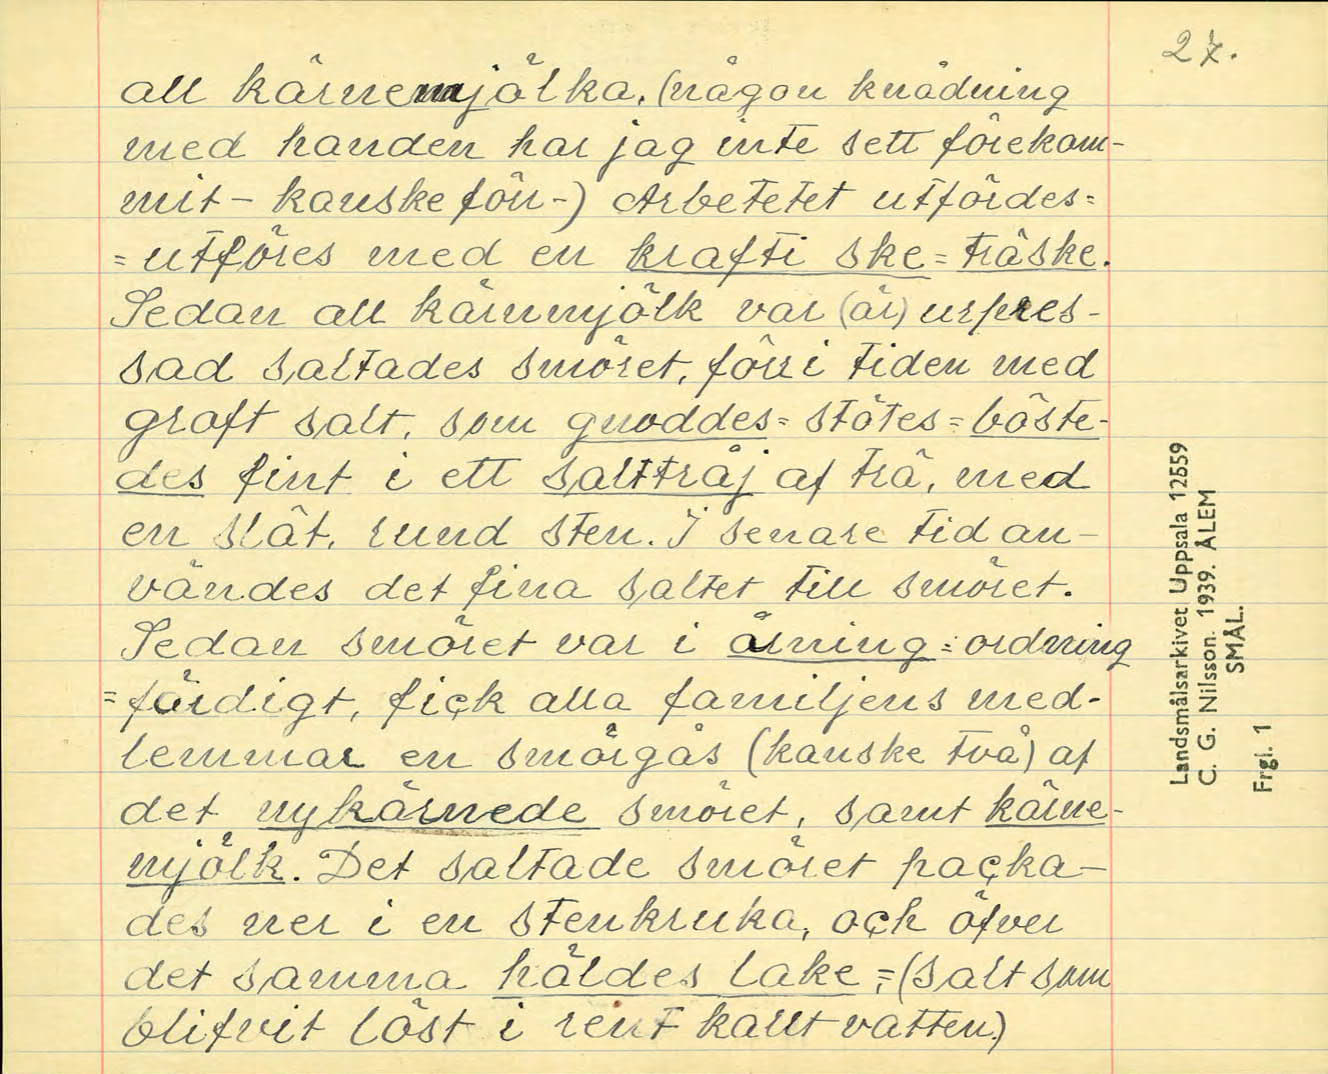 27.
all kärnemjölka, (någon knådning
med handen har jag inte sett förekom-
mit - kanske förr -) Arbetetet utfördes=
= utföres med en krafti ske = träske.
Sedan all kärnmjölk var (är) urpres-
sad saltades smöret, förr i tiden med
graft salt, som gnoddes = stötes = böste-
des fint i ett saltträj af trä, med
en slät, rund sten. I senare tid an-
vändes det fina saltet till smöret.
Sedan smöret var i årning = ordning
= färdigt, fick alla familjens med-
lemmar en smörgås (kanske två) af
det nykärnede smöret, samt kärne-
mjölk. Det saltade smöret packa-
des ner i en stenkruka, och öfver
det samma häldes lake, = (salt som
blifvit löst i rent kallt vatten.)
Landsmålsarkivet Uppsala 12559
C. G. Nilsson. 1939. ÅLEM
SMÅL.
Frgl. 1